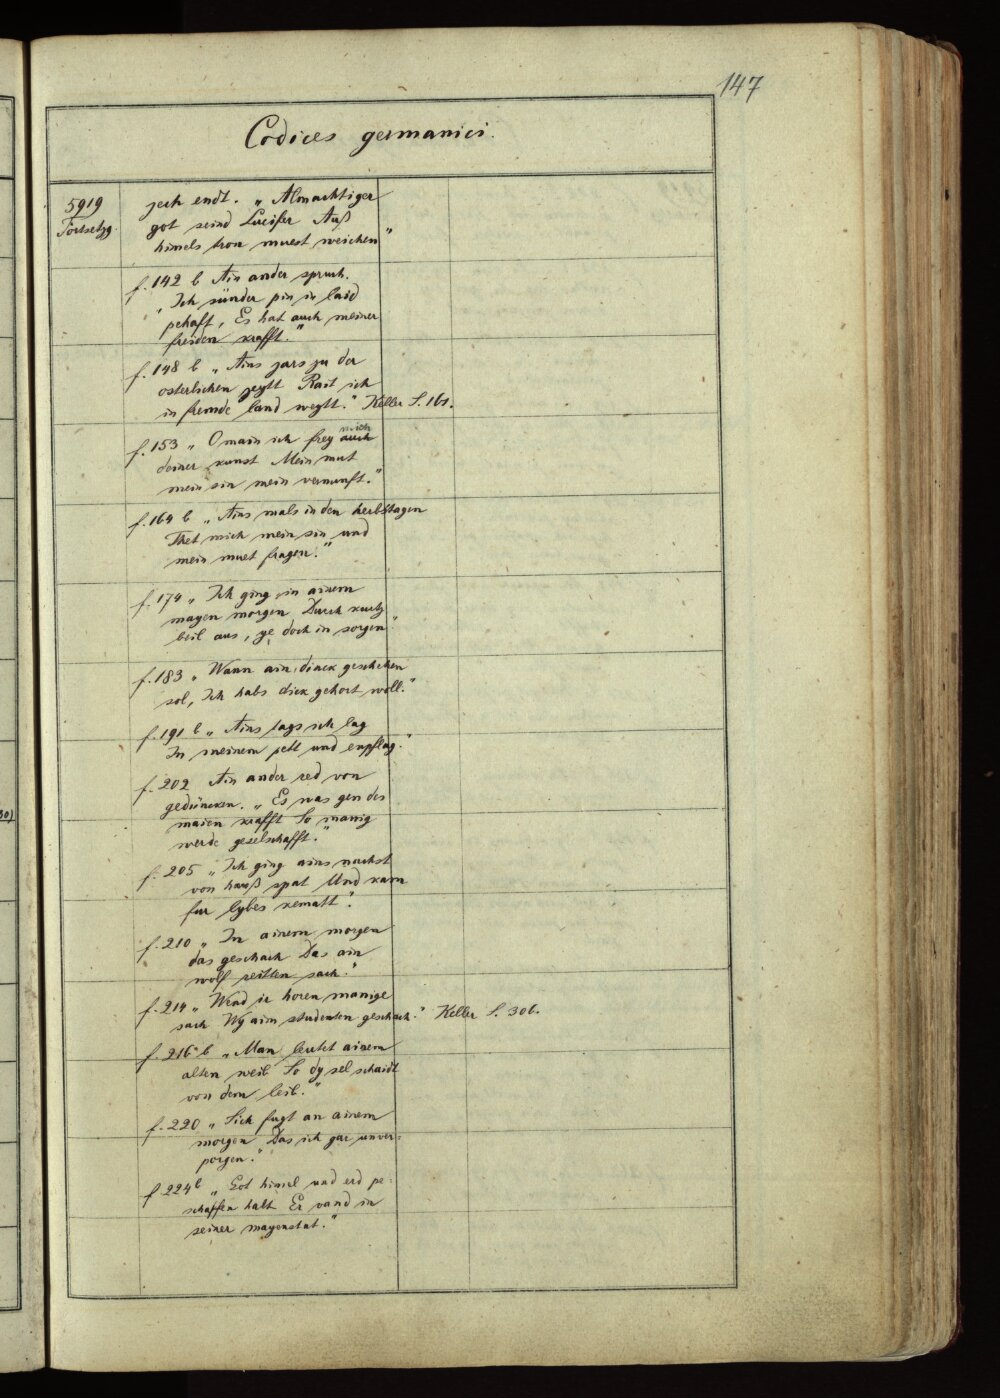 147
Codices germanici.
5919
Fortsetzg.
zeih endt. „Almachtiger
got seind Lucifer Auß
himels tron muest weichen"
f. 142 b Ain ander spruch.
„Ich sünder pin in laid
pehaft, Es hat auch meiner
freiden krafft."
f. 148 b „Ains jars zu der
osterlichen zeytt Rait ich
in fremde land weytt." Keller S. 161.
f. 153 „O main ich frey mich auch
deiner kunst Mein mut
mein sin mein vernunft."
f. 164 b „Ains mals in den herbstagen
Thet mich mein sin und
mein muet fragen."
f. 174 „Ich ging in ainem
mayen morgen Durch kurtz
beil aus, ye doch in sorgen"
f. 183 „Wann ain dinck geschehen
sol, Ich habs dick gehort woll."
f. 191 b „Ains tags ich lag
In meinem pett und enpflag."
f. 202 Ain ander red von
gedüncken. „Es was gen des
maien krafft So manig
werde geselschafft."
f. 205 „Ich ging ains nachst
von hauß spat Und kam
fur lybes kematt".
f. 210 „In ainem morgen
das geschach Das ain
wolf reitten sach."
f. 214 „Wend ir horen manige
sach Wy aim studenten geschach." Keller S. 306.
f. 216 b „Man leutet ainem
alten weib So dy sel schaidt
von dem leib."
f. 220 „Sich fugt an ainem
morgen Das ich gar unver=
porgen."
f 224b „Got himel und erd pe=
schaffen halt Er vand in
seiner mayenstat."